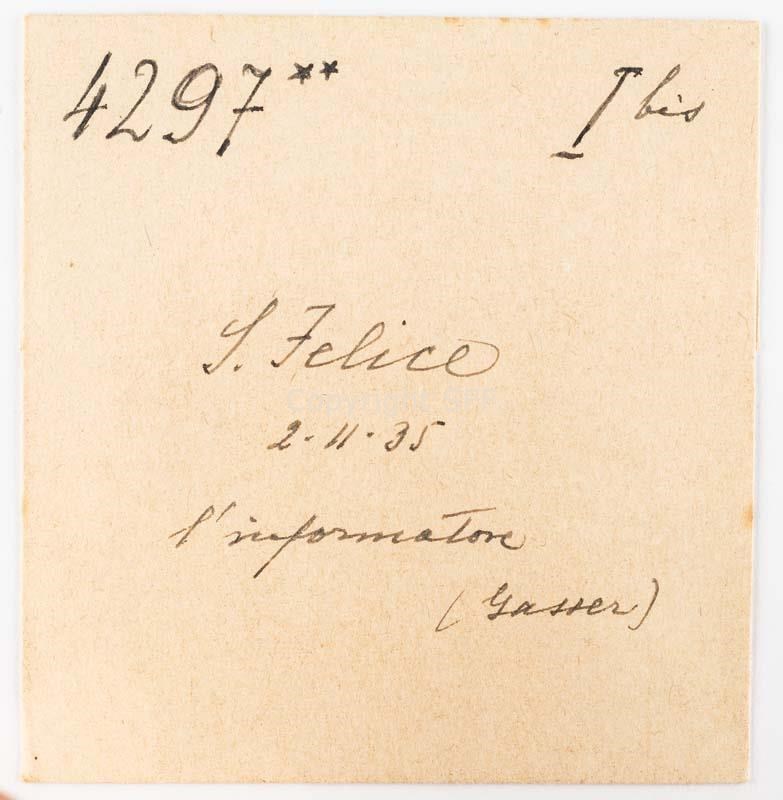 4297** I bis
S. Felice
2-11-35
l'informatore
(Gasser)